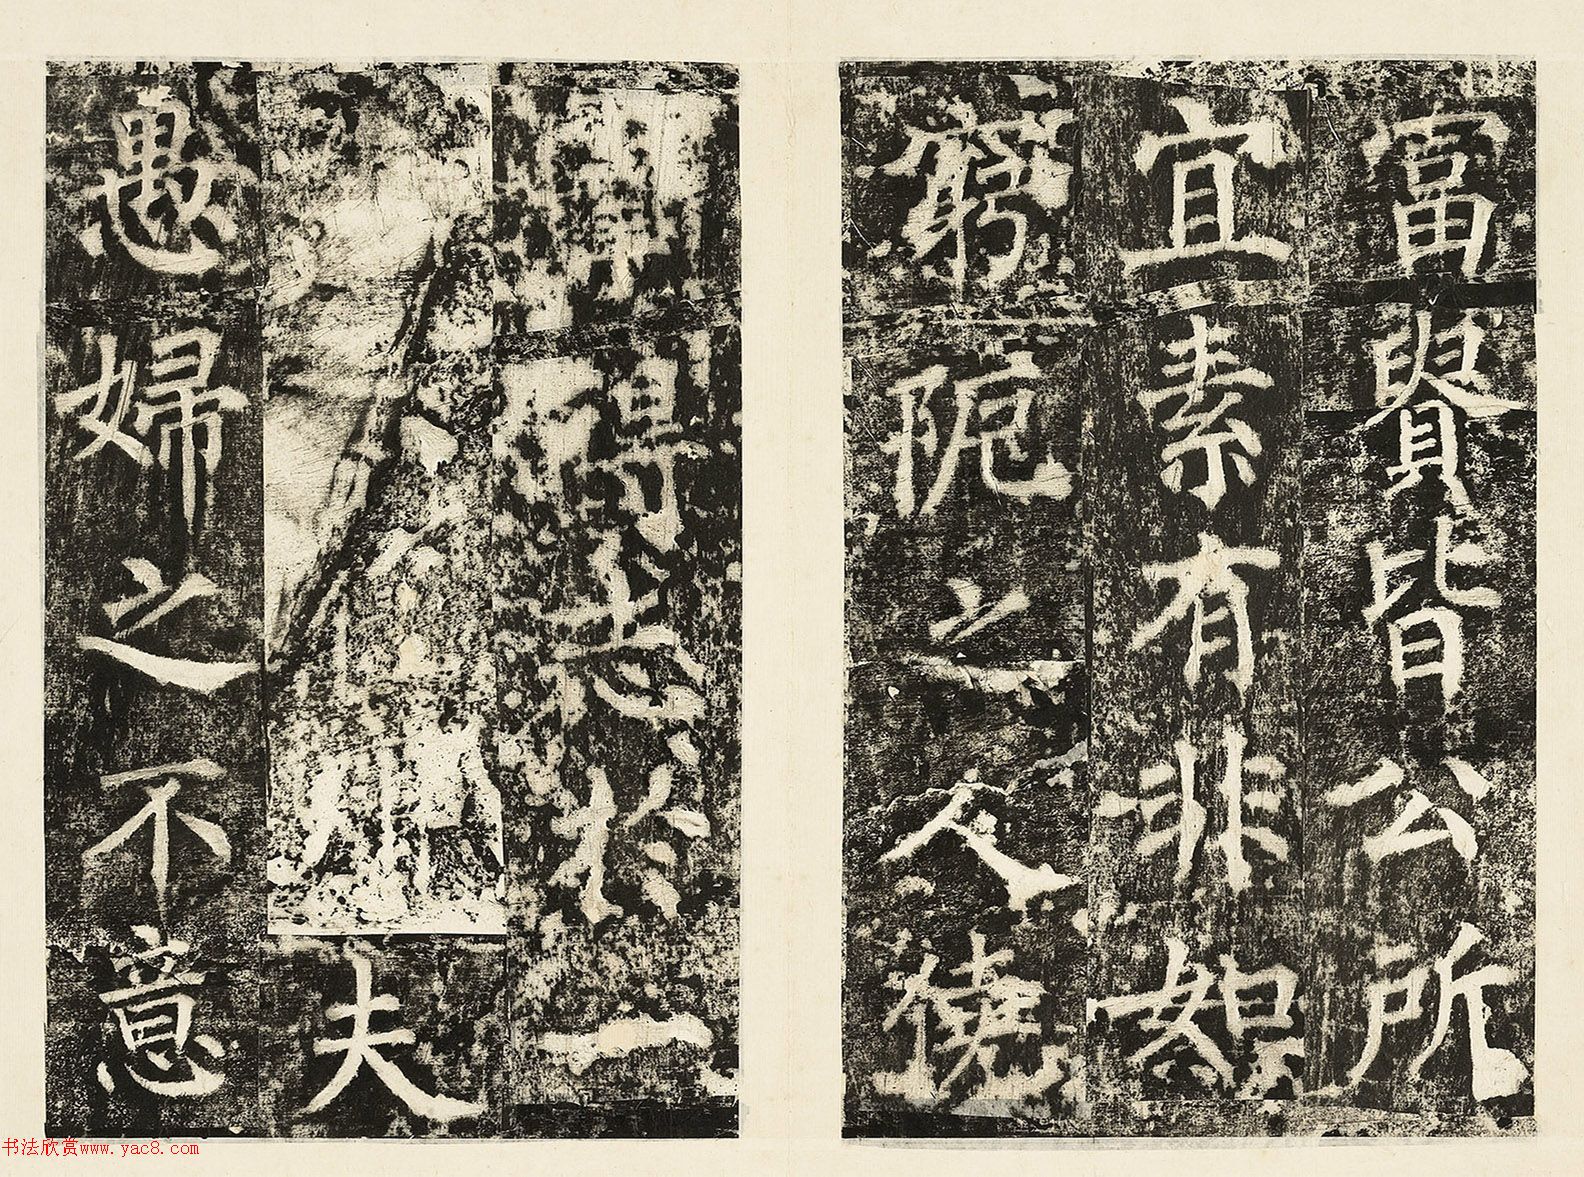 富賢皆公所
宜素有非如
窮阨之人犹
專志於一
夫
愚婦之不意
书法欣赏www.yac8.com